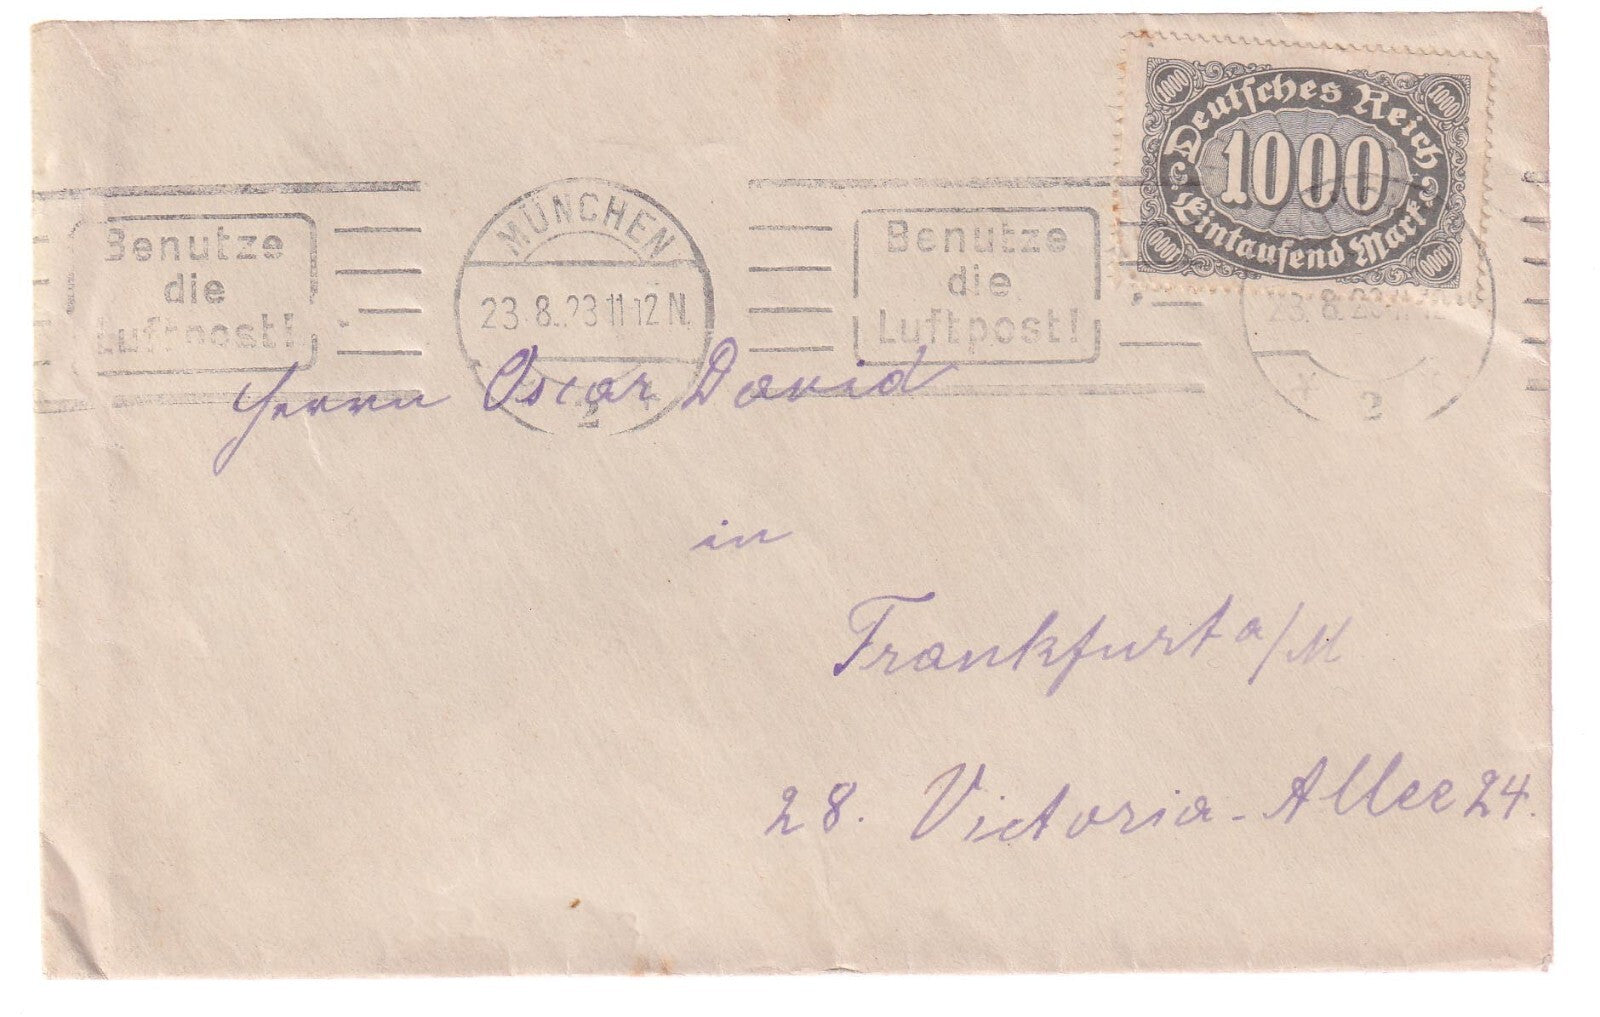 1000 1000
Deutsches Reich
1000
Eintausend Mark
1000 1000
Benutze
die
Luftpost!
MÜNCHEN
23.8.23 11-12 N.
2
Benutze
die
Luftpost!
23.8.23 11-12
2
Herrn Oscar David
in
Frankfurt a/M
28. Victoria-Allee 24.